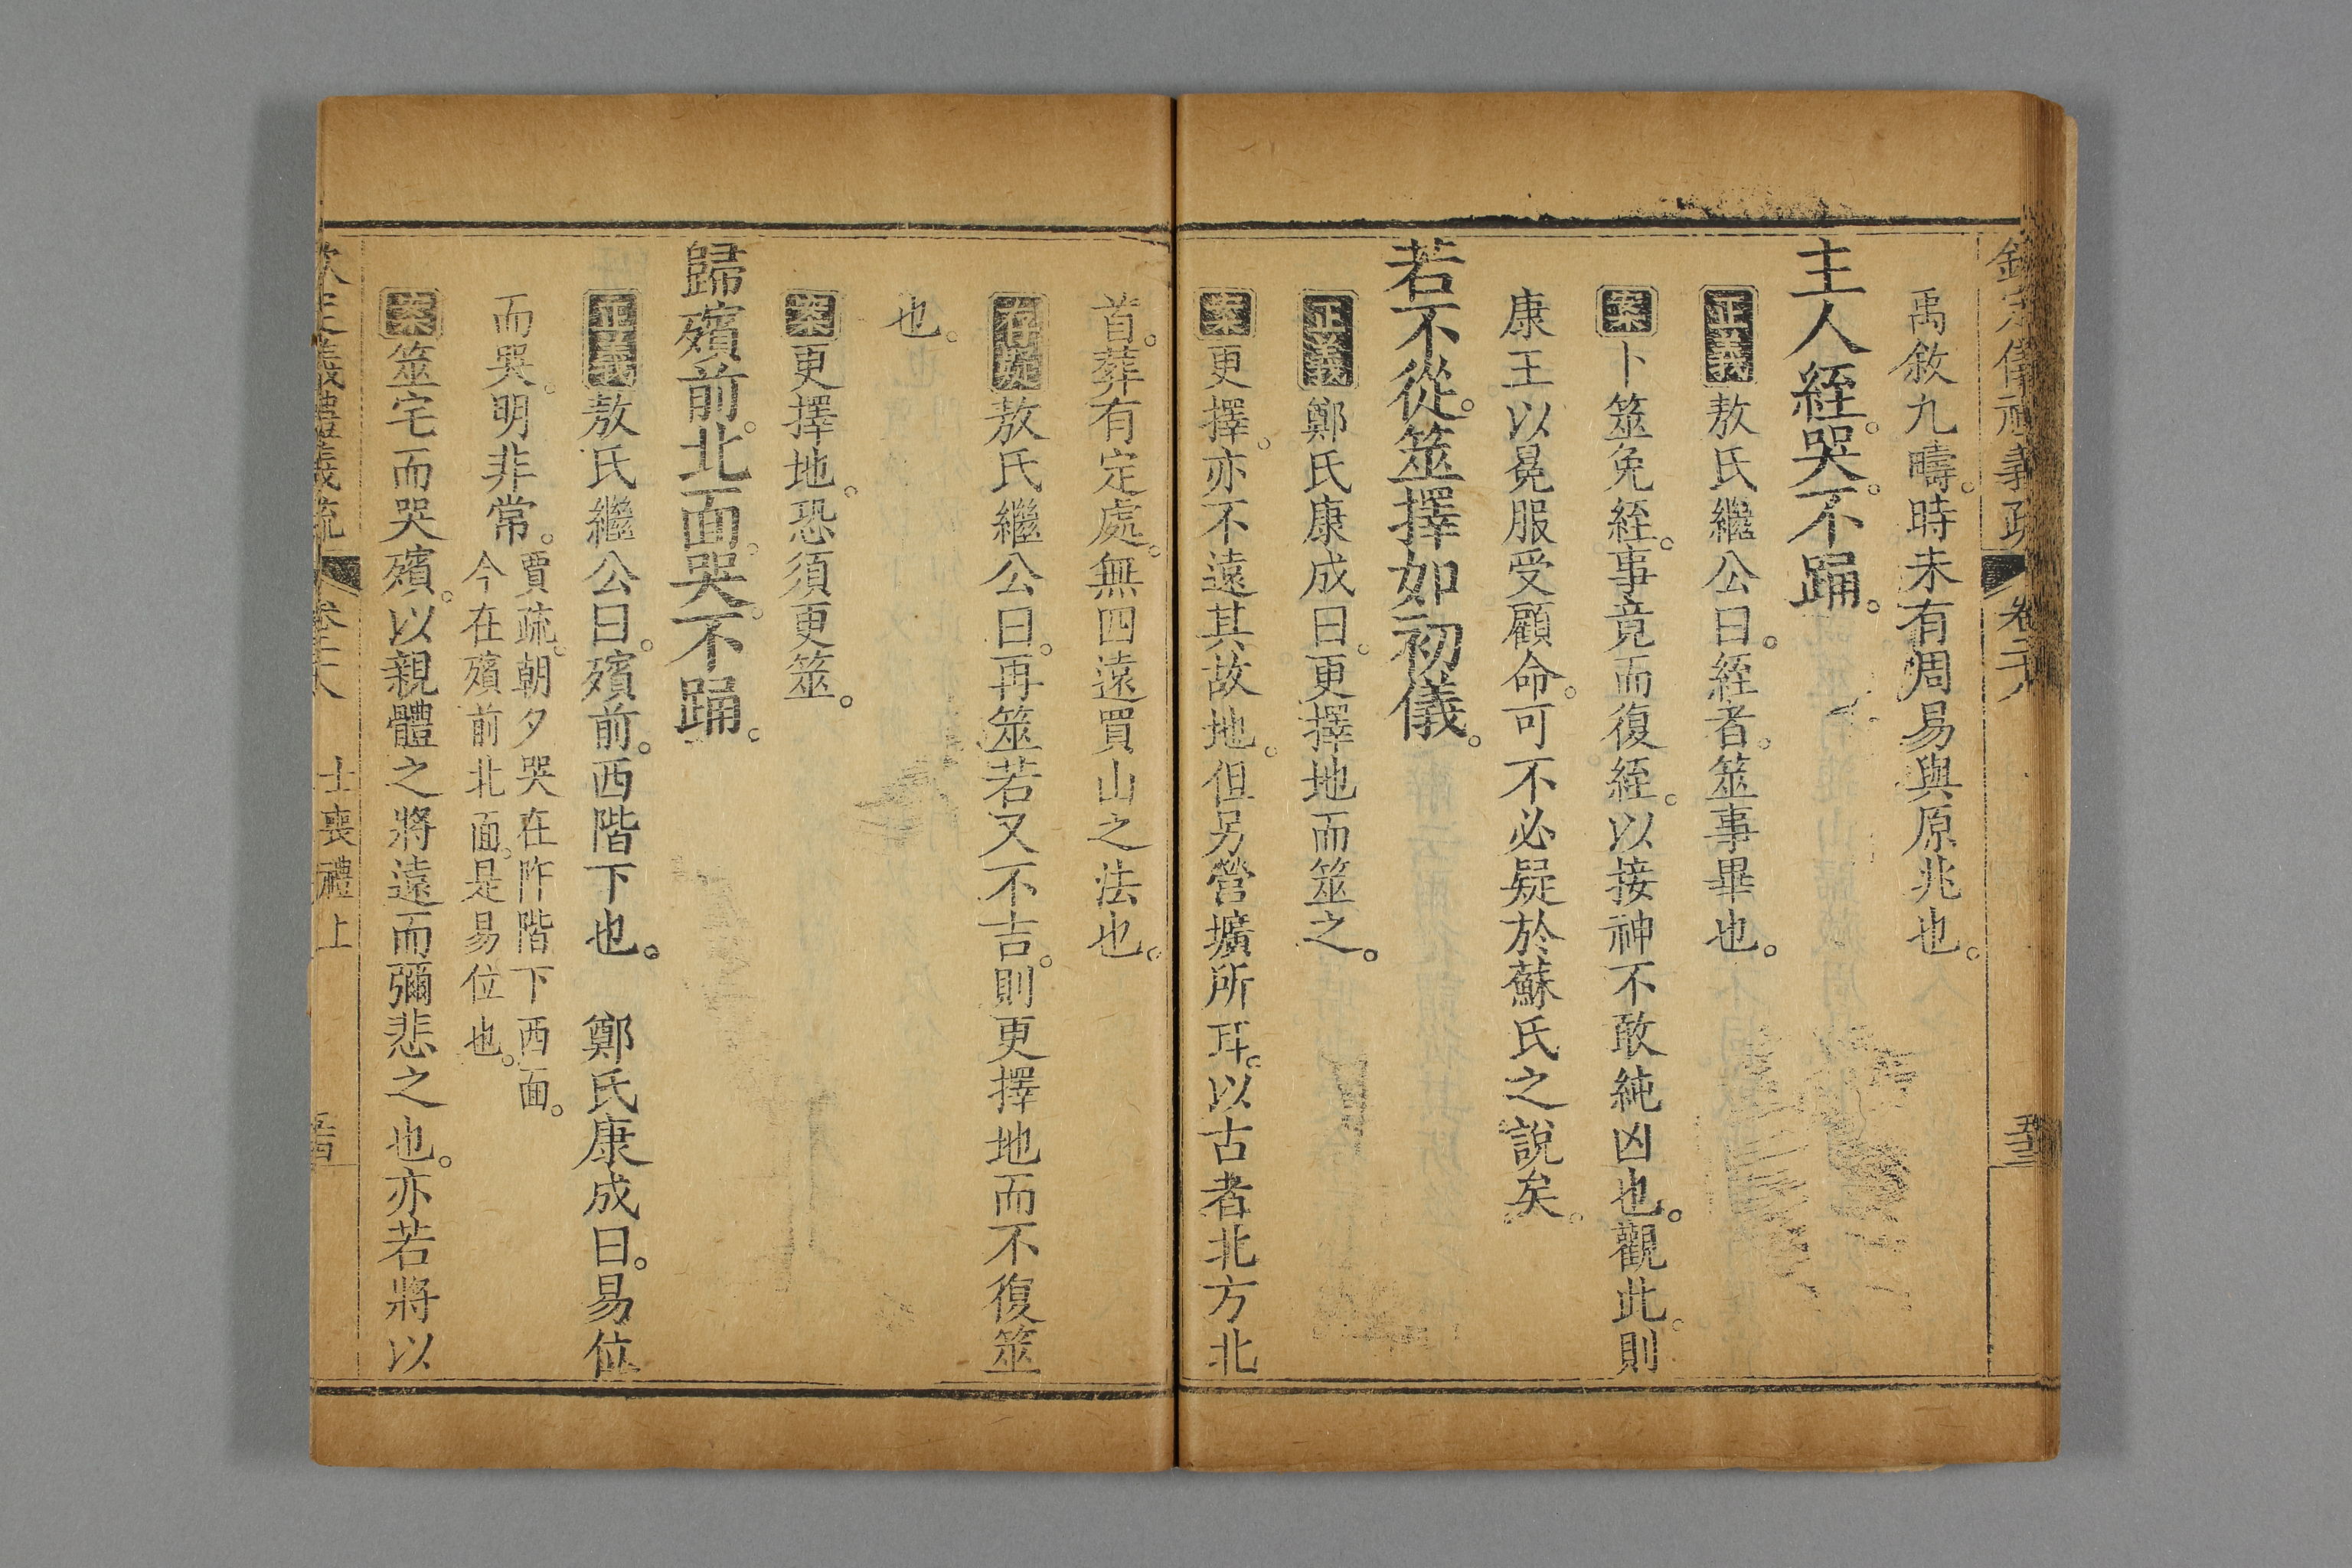 欽定儀禮義疏 卷二十八
禹敘九疇。時未有周易與原兆也。
主人絰。哭。不踊。
正義敖氏繼公曰。絰者。筮事畢也。
案卜筮免絰。事竟而復絰。以接神不敢純凶也。觀此。則
康王以冕服受顧命。可不必疑於蘇氏之說矣。
若不從。筮擇如初儀。
正義鄭氏康成曰。更擇地而筮之。
案更擇。亦不遠其故地。但另營壙所耳。以古者北方北
首。葬有定處。無四遠買山之法也。
存疑敖氏繼公曰。再筮若又不吉。則更擇地而不復筮
也。
案更擇地。恐須更筮。
歸殯前。北面哭。不踊。
正義敖氏繼公曰。殯前。西階下也。 鄭氏康成曰。易位
而哭。明非常。
賈疏。朝夕哭在阼階下西面。
今在殯前北面。是易位也。
案筮宅而哭殯。以親體之將遠而彌悲之也。亦若將以
欽定儀禮義疏 卷二十八 士喪禮上